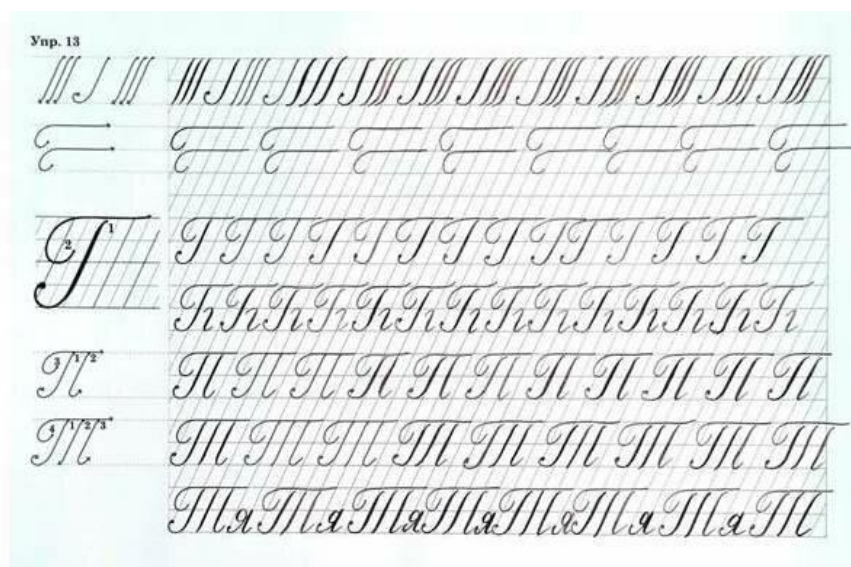 Упр. 13
2 1
Г Г Г Г Г Г Г Г Г Г Г Г Г Г Г
Гг Гг Гг Гг Гг Гг Гг Гг Гг Гг Гг Гг Гг Гг
3 1 2
П П П П П П П П П П П П
4 1 2 3
Т Т Т Т Т Т Т Т Т Т
Тя Тя Тя Тя Тя Тя Тя Т